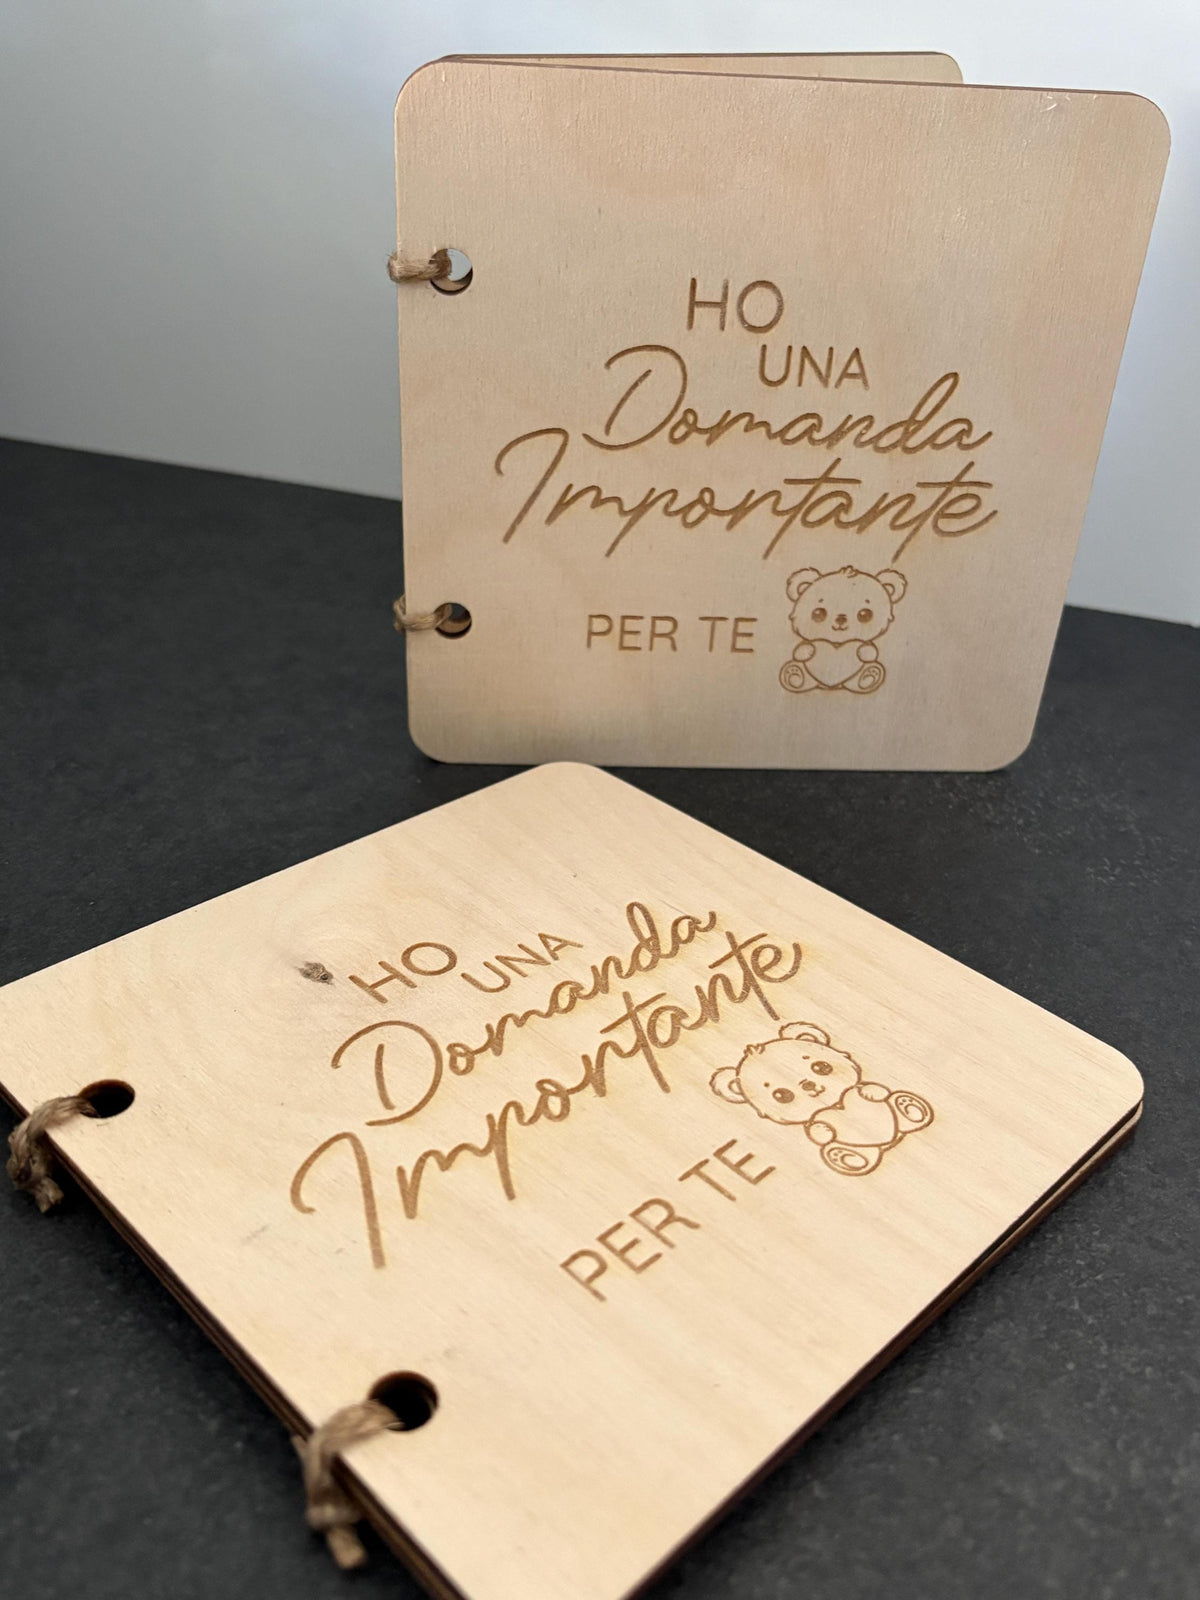 HO
UNA
Domanda
Importante
PER TE
HO
UNA
Domanda
Importante
PER TE